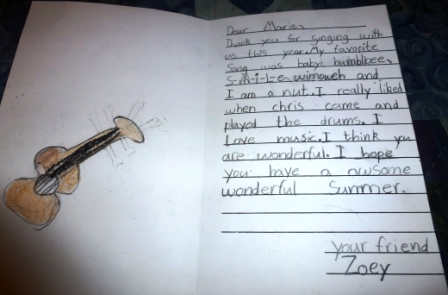 Dear Marie,
Thank you for singing with
us this year. My favorite
song was baby bumblbee,
s-m-i-l-e, wimoweh and
I am a nut. I really liked
when chris came and
played the drums. I
Love music. I think you
are wonderful. I hope
you have a awsome
wonderful Summer.
your friend
Zoey